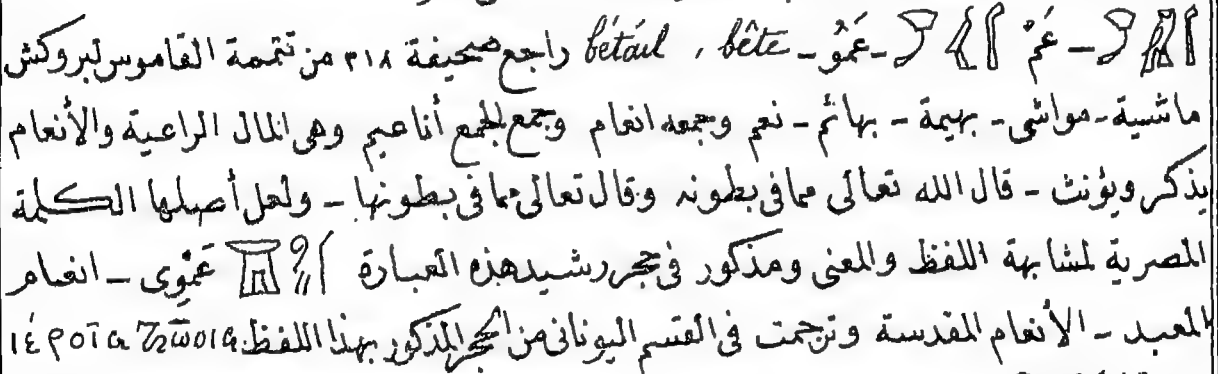 – عَمْ – عَمُو – bétail , bête راجع صحيفة ٣١٨ من تتمة القاموس لبروكش
ماشية – مواشى – بهيمة – بهائم – نعم وجمعه انعام وجمع الجمع أناعيم وهى المال الراعية والأنعام
يذكر ويؤنث – قال الله تعالى مما فى بطونه وقال تعالى مما فى بطونها – ولعل أصلها الكلمة
المصرية لمشابهة اللفظ والمعنى ومذكور فى حجر رشيد هذه العبارة عَمْوِى – انعام
المعبد – الأنعام المقدسة وترجمت فى القسم اليونانى من الحجر المذكور بهذا اللفظ